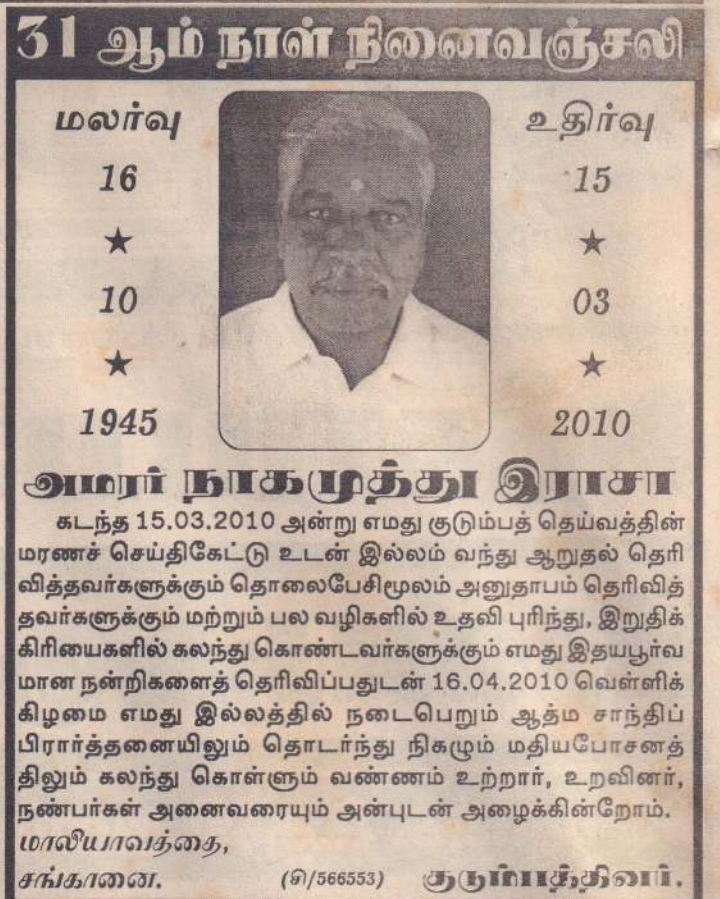 31 ஆம் நாள் நினைவஞ்சலி
மலர்வு
16
★
10
★
1945
உதிர்வு
15
★
03
★
2010
அமரர் நாகமுத்து இராசா
கடந்த 15.03.2010 அன்று எமது குடும்பத் தெய்வத்தின்
மரணச் செய்திகேட்டு உடன் இல்லம் வந்து ஆறுதல் தெரி
வித்தவர்களுக்கும் தொலைபேசிமூலம் அனுதாபம் தெரிவித்
தவர்களுக்கும் மற்றும் பல வழிகளில் உதவி புரிந்து, இறுதிக்
கிரியைகளில் கலந்து கொண்டவர்களுக்கும் எமது இதயபூர்வ
மான நன்றிகளைத் தெரிவிப்பதுடன் 16.04.2010 வெள்ளிக்
கிழமை எமது இல்லத்தில் நடைபெறும் ஆத்ம சாந்திப்
பிரார்த்தனையிலும் தொடர்ந்து நிகழும் மதியபோசனத்
திலும் கலந்து கொள்ளும் வண்ணம் உற்றார், உறவினர்,
நண்பர்கள் அனைவரையும் அன்புடன் அழைக்கின்றோம்.
மாலியாவத்தை,
சங்கானை. (சி/566553) குடும்பத்தினர்.